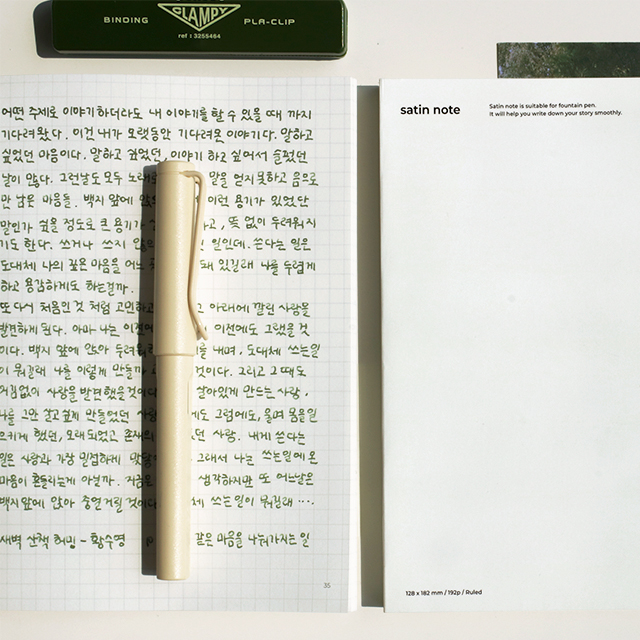 BINDING
CLAMPY
PLA-CLIP
ref : 3255464
어떤 주제로 이야기하더라도 내 이야기를 할 수 있을 때 까지
기다려왔다. 이건 내가 오랫동안 기다려온 이야기다. 말하고
싶었던 마음이다. 말하고 싶었던, 이야기 하고 싶어서 슬펐던
날이 많다. 그런날도 모두 노래로 말을 얻지못하고 음으로
만 남은 마음들. 백지 앞에 앉으 이런 용기가 있었단
말인가 싶을 정도로 큰 용기가 하고, 뜻 없이 두려워지
기도 한다. 쓰거나 쓰지 않 일인데. 쓴다는 일은
도대체 나의 깊은 마음을 어느 돼 있길래 나를 두렵게
하고 용감하게도 하는걸까.
또 다시 처음인 것 처럼 고민하고 고 아래에 깔린 사랑을
발견하게 된다. 아마 나는 이전에 이전에도 그랬을 것
이다. 백지 앞에 앉아 두려워 를 내며, 도대체 쓰는일
이 뭐길래 나를 이렇게 만들까 것이다. 그리고 그 때도
어김없이 사랑을 발견했을것이다 살아있게 만드는 사랑,
나를 그만 살고싶게 만들었던 사랑 에도 그럼에도, 울며 몸을일
으키게 했던, 오래되었고 존재 던 사랑. 내게 쓴다는
일은 사랑과 가장 밀접하게 맞닿 그래서 나는 쓰는일에 온
마음이 흔들리는게 아닐까. 지금은 생각하지만 또 어느날은
백지앞에 앉아 중얼거릴 것이다 체 쓰는일이 뭐길래 ….
새벽 산책 허밍 – 황수영 같은 마음을 나눠가지는 일
35
satin note
Satin note is suitable for fountain pen.
It will help you write down your story smoothly.
128 x 182 mm / 192p / Ruled